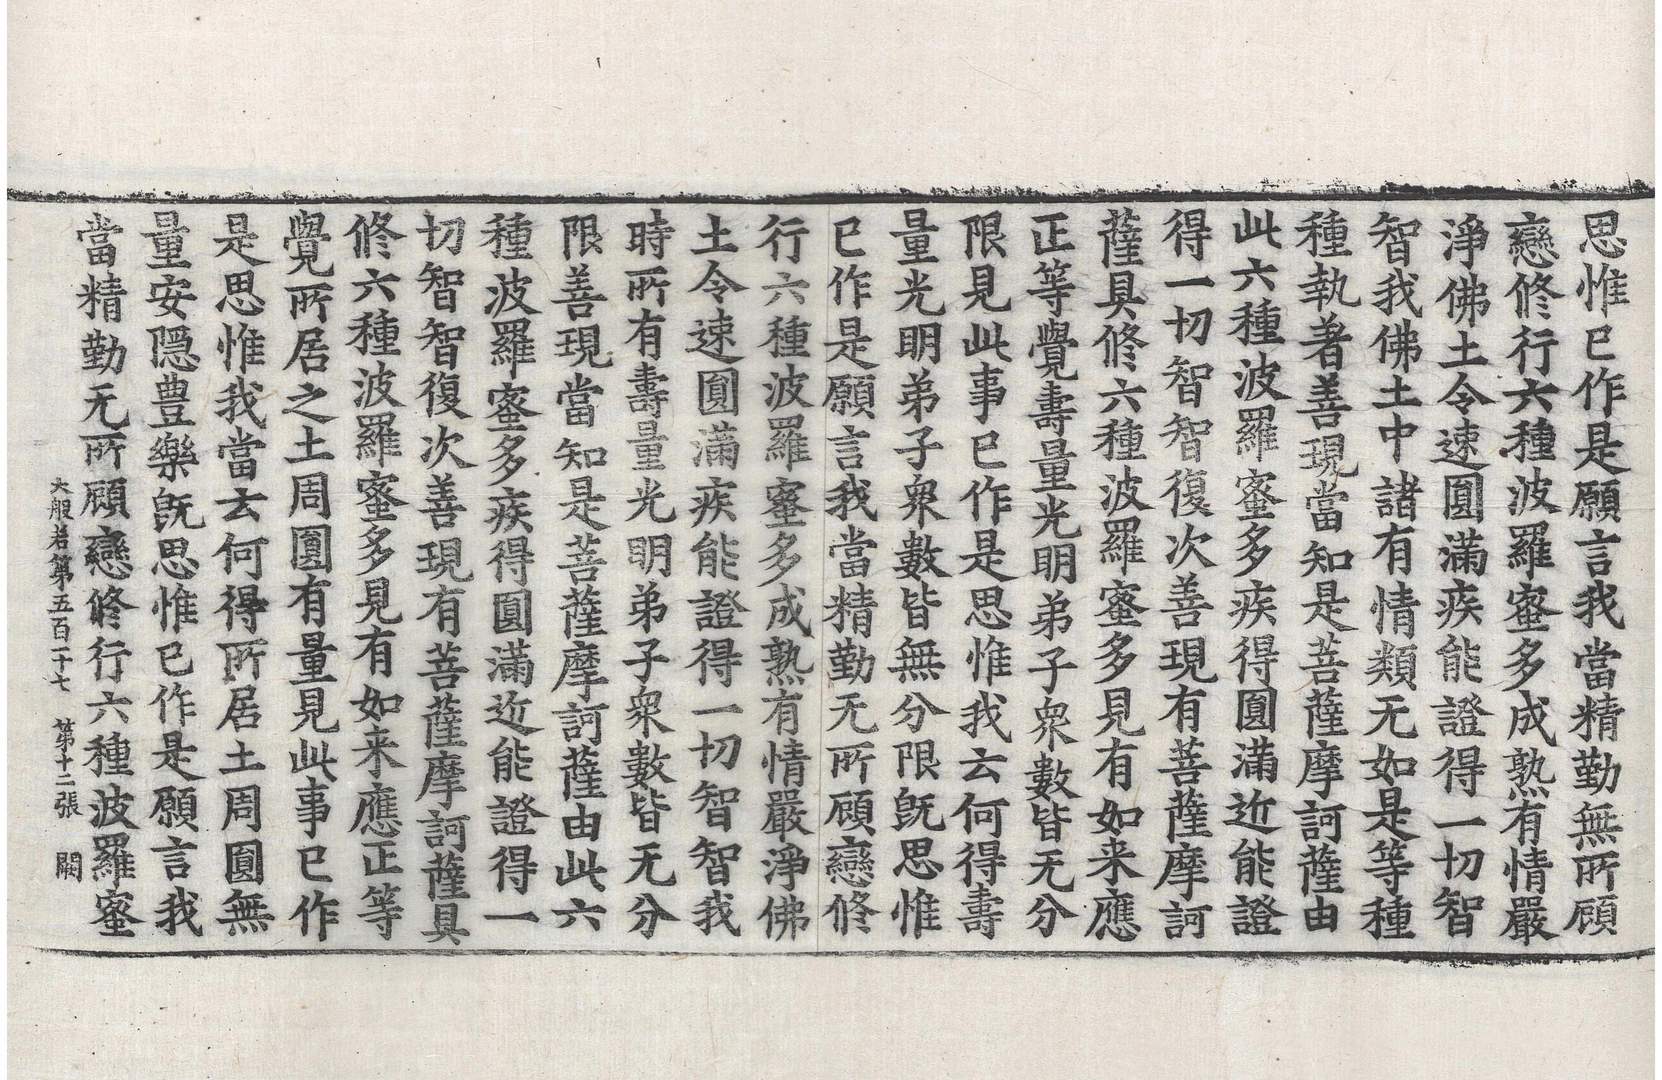 思惟已作是願言我當精勤無所顧
戀修行六種波羅蜜多成熟有情嚴
淨佛土令速圓滿疾能證得一切智
智我佛土中諸有情類无如是等種
種執著善現當知是菩薩摩訶薩由
此六種波羅蜜多疾得圓滿近能證
得一切智智復次善現有菩薩摩訶
薩具修六種波羅蜜多見有如来應
正等覺壽量光明弟子衆數皆无分
限見此事已作是思惟我云何得壽
量光明弟子衆數皆無分限旣思惟
已作是願言我當精勤无所顧戀修
行六種波羅蜜多成熟有情嚴淨佛
土令速圓滿疾能證得一切智智我
時所有壽量光明弟子衆數皆无分
限善現當知是菩薩摩訶薩由此六
種波羅蜜多疾得圓滿近能證得一
切智智復次善現有菩薩摩訶薩具
修六種波羅蜜多見有如来應正等
覺所居之土周圓有量見此事已作
是思惟我當云何得所居土周圓無
量安隱豊樂旣思惟已作是願言我
當精勤无所顧戀修行六種波羅蜜
大般若第五百一十七 第十二張 闕